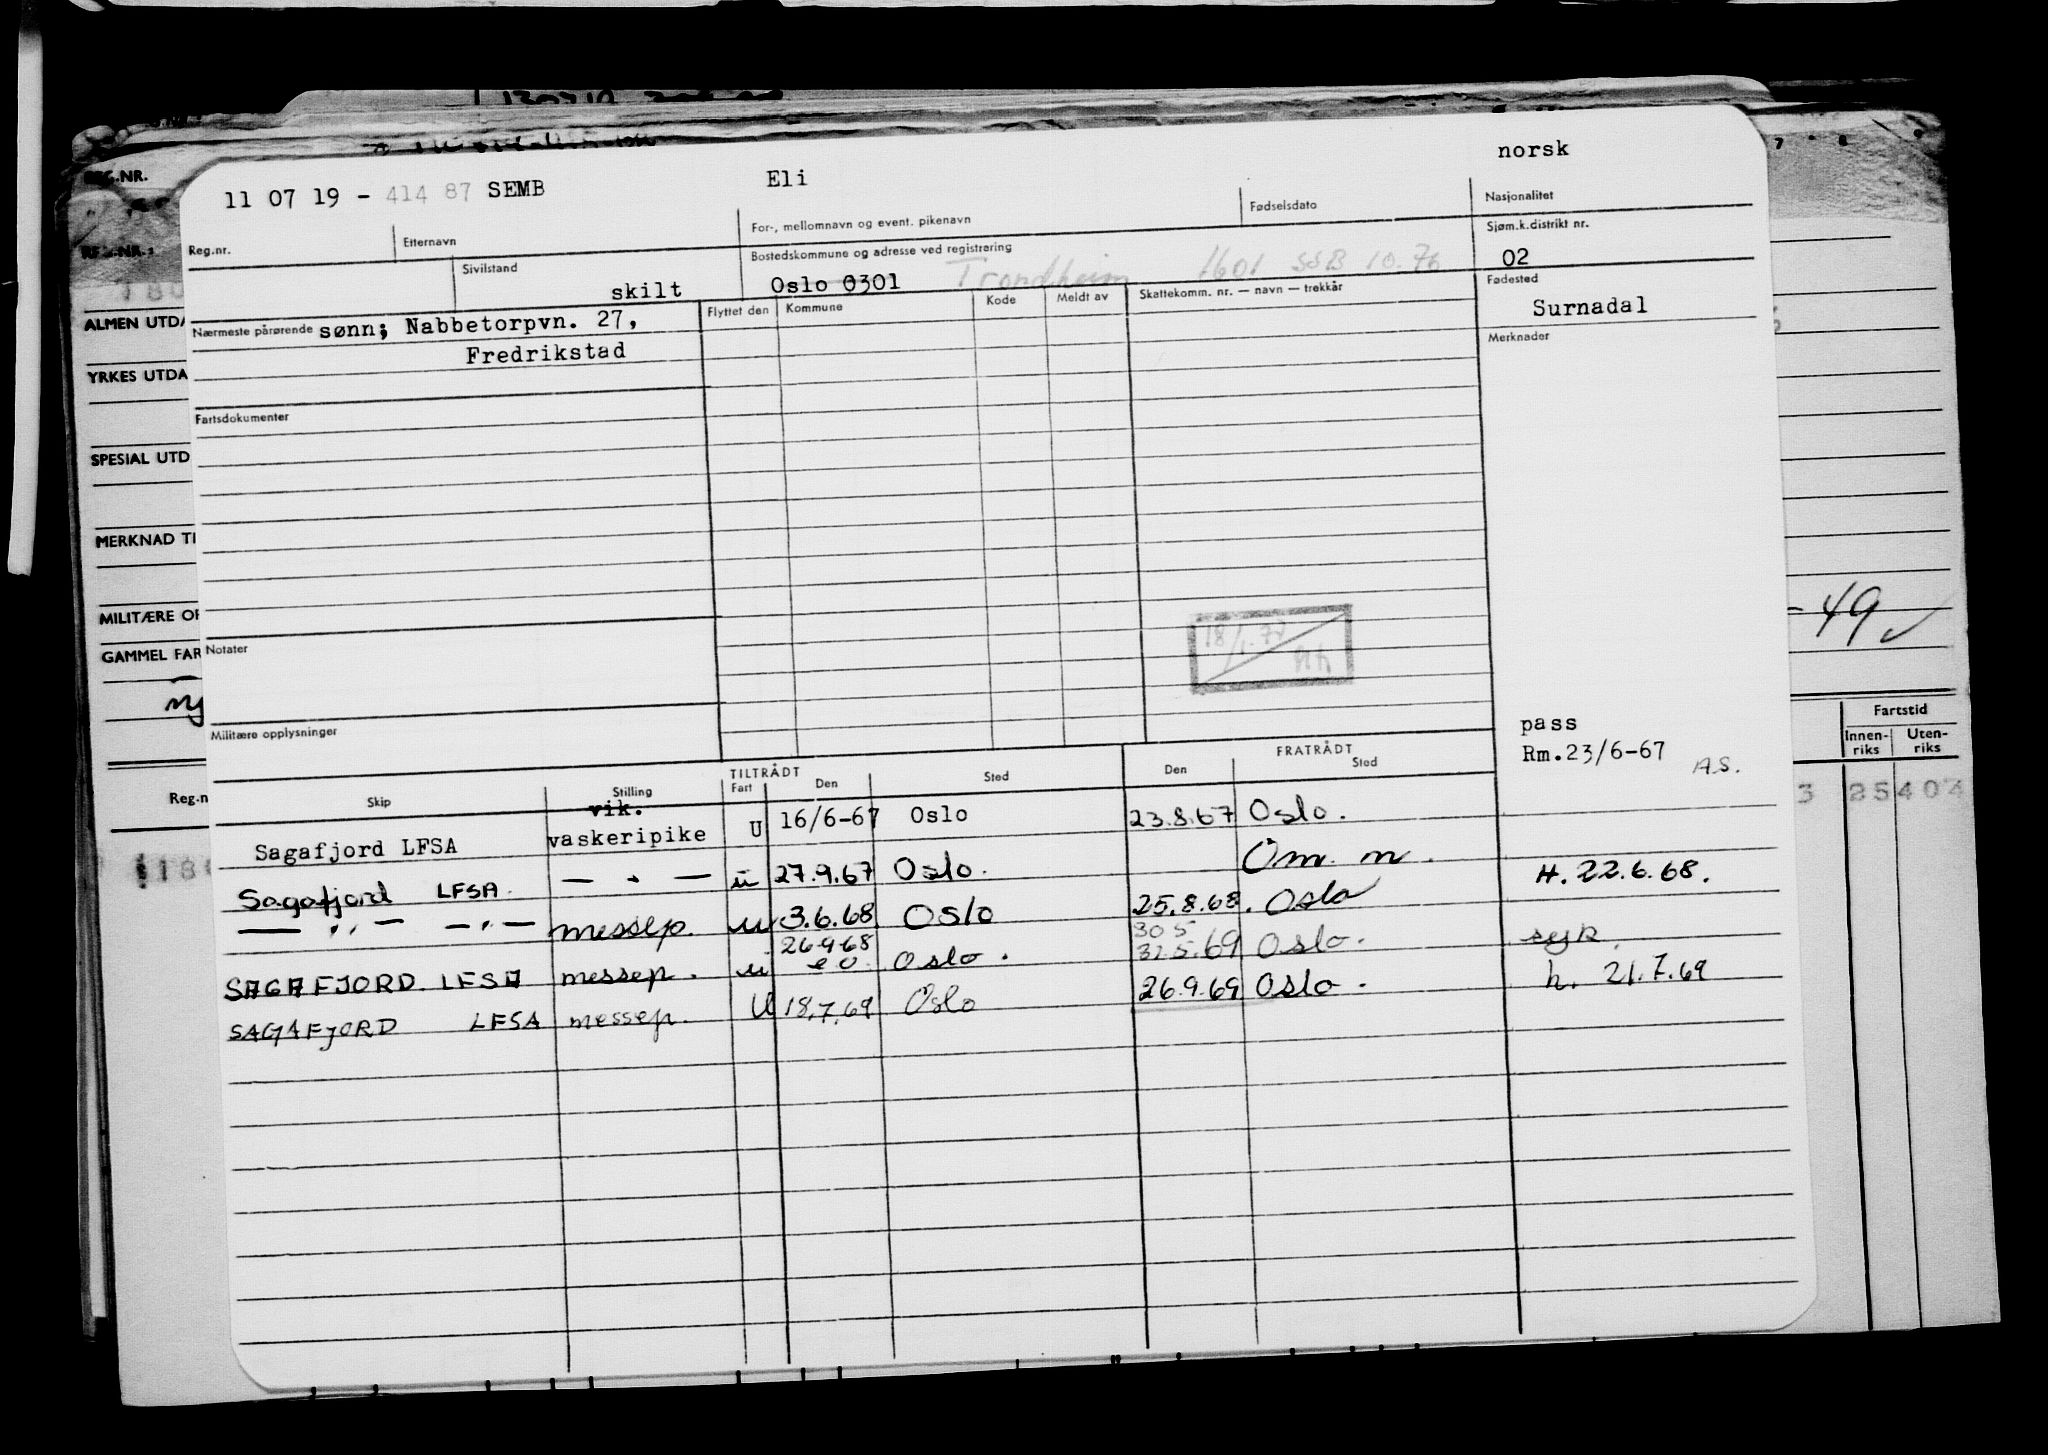 norsk
11 07 19 - 414 87 SEMB Eli
REG.NR.
Reg.nr. Etternavn For-, mellomnavn og event. pikenavn Fødselsdato Nasjonalitet
Sivilstand Bostedskommune og adresse ved registrering Sjøm.k.distrikt nr.
skilt Oslo 0301 Trondheim 1601 SSB 10.76 02
Nærmeste pårørende sønn; Nabbetorpvn. 27, Flyttet den Kommune Kode Meldt av Skattekomm. nr. — navn — trekkår Fødested
Surnadal
Fredrikstad
Merknader
ALMEN UTDA
YRKES UTDA
Fartsdokumenter
SPESIAL UTD
MERKNAD TI
MILITÆRE OP
- 49 ✓
18/1.77
GAMMEL FAR
Notater
Militære opplysninger
pass
Rm.23/6-67 A.S.
Fartstid
Innen-riks Uten-riks
TILTRÅDT FRATRÅDT
Reg.n Skip Stilling Fart Den Sted Den Sted
3 25404
vik.
Sagafjord LFSA vaskeripike U 16/6-67 Oslo 23.8.67 Oslo.
Sagafjord LFSA. — " — u 27.9.67 Oslo. Om. m.
— " — — " — messep. u 3.6.68 Oslo 25.8.68. Oslo H. 22.6.68.
26.9.68 30 5
SAGAFJORD. LFSA messep. u e o. Oslo. 31.5.69 Oslo. syk.
SAGAFJORD LFSA messep. U 18.7.69 Oslo 26.9.69 Oslo. h. 21.7.69